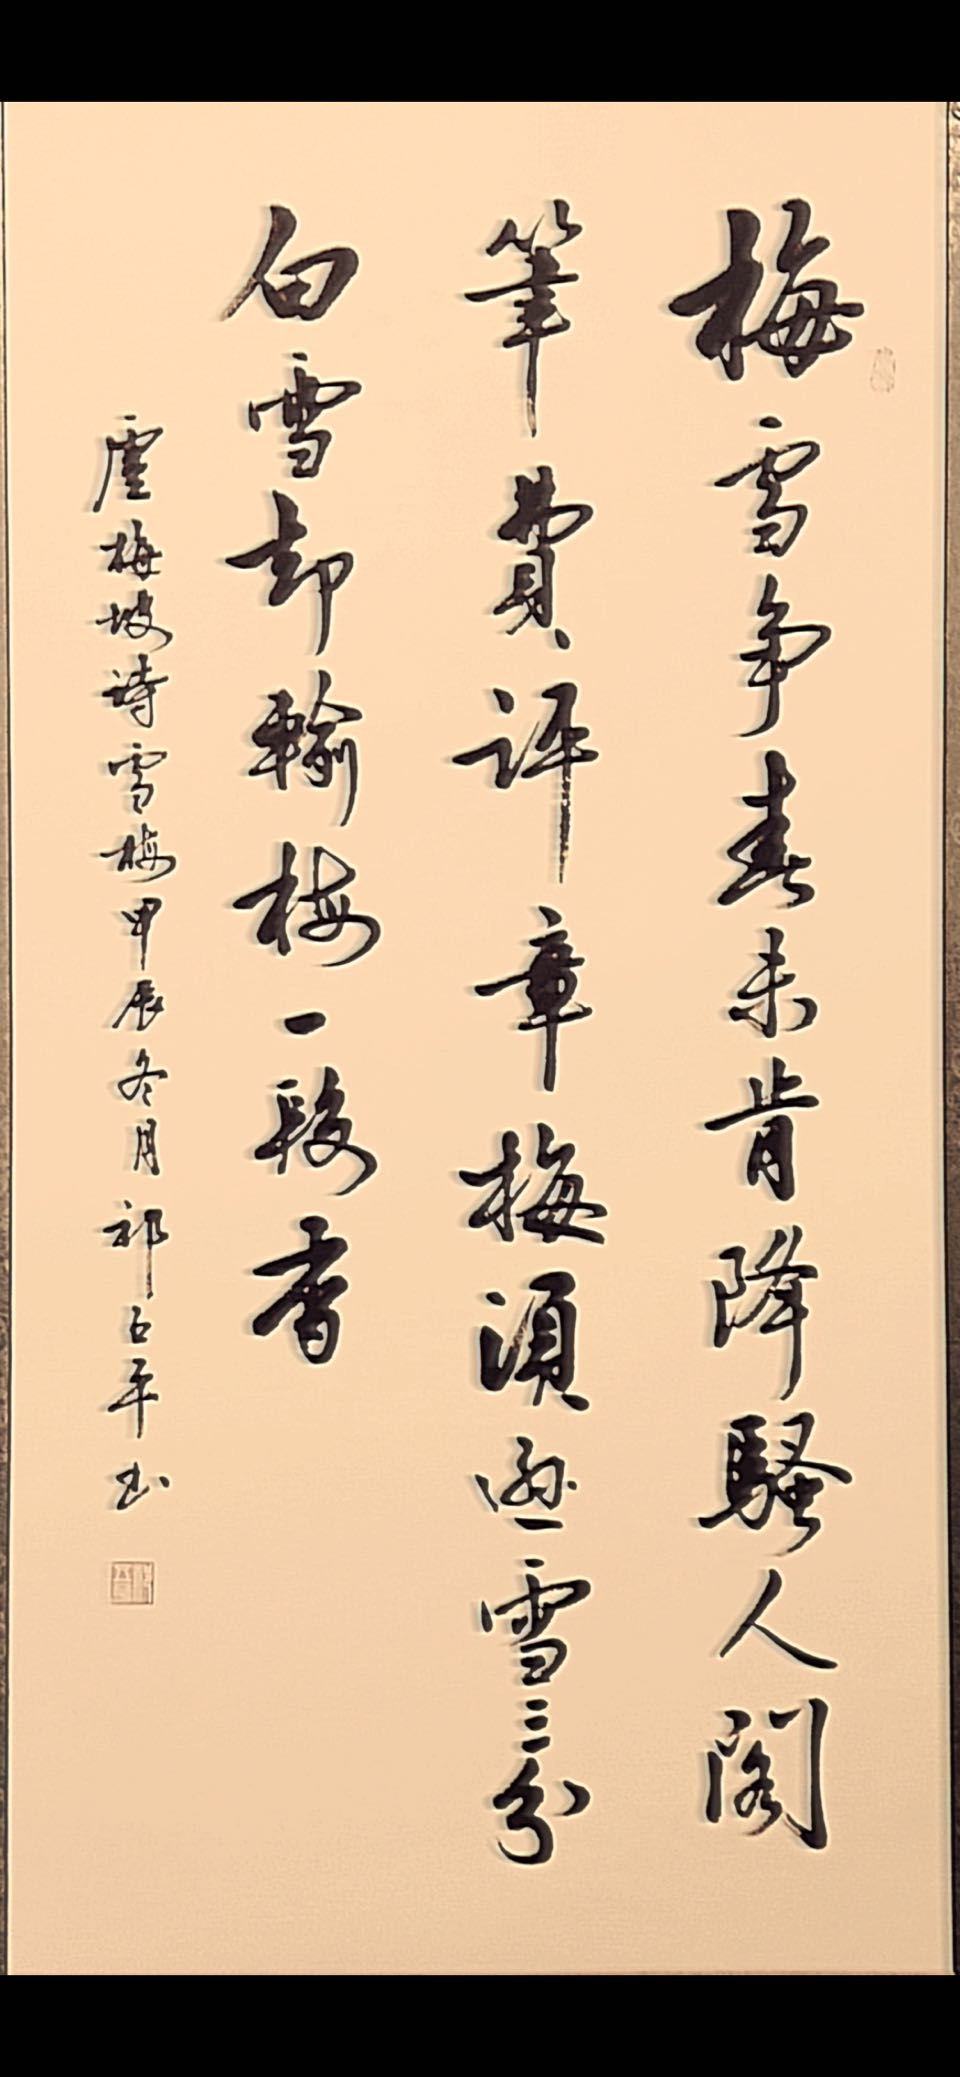 梅雪争春未肯降騷人閣
筆費評章梅須遜雪三分
白雪却輸梅一段香
盧梅坡詩雪梅甲辰冬月祁平书